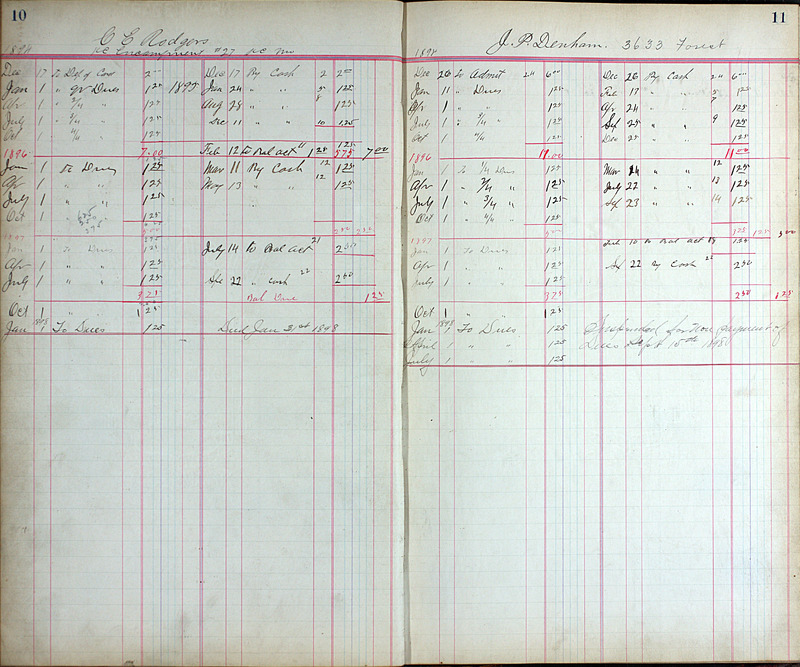 10
C E Rodgers
KC Encampment #27 KC Mo
1894
Dec 17 To Def of Cow 2 00 Dec 17 By Cash 2 2 00
Jan 1 " qr Dues 1 25 1895 Jan 24 " " 5 1 25
Apr 1 " 2/4 " 1 25 Aug 28 " " 8 1 25
July 1 " 3/4 " 1 25 Dec 11 " " 10 1 25
Oct 1 " 4/4 " 1 25
1 25
7.00 Feb 12 To Bal act 11 1 25 5 75 7 00
1896
Jan 1 To Dues 1 25 Mar 11 By Cash 12 1 25
Apr 1 " " 1 25 May 13 " " 12 1 25
July 1 " " 1 25
Oct 1 " " 1 25
5 00 2 50 2 50
1897
Jan 1 To Dues 1 25 July 14 To Bal act 21 2 50
Apr 1 " " 1 25
July 1 " " 1 25 Dec 22 " cash 22 2 50
Bal Due 1 25
Oct 1 " " 1 25
Jan 1898 1 To Dues 1 25 Died Jan 31st 1898
11
J. P. Denham. 3633 Forest
Dec 26 To Admit 24 6 00 Dec 26 By Cash 24 6 00
Jan 11 " Dues 1 25 Feb 17 " " 5 1 25
Apr 1 " " 1 25 Apr 24 " " 7 1 25
July 1 " 3/4 " 1 25 Sep 25 " " 9 1 25
Oct 1 " 4/4 1 25 Dec 25 " " 1 25
11.00 11 00
1896
Jan 1 To 1/4 Dues 1 25 Mar 24 " " 12 1 25
Apr 1 " 2/4 " 1 25 July 22 " " 13 1 25
July 1 " 3/4 " 1 25 Sep 23 " " 14 1 25
Oct 1 " 4/4 " 1 25
5 00 3 75 1 25 5 00
1897
Feb 10 To Bal act 19 1 25
Jan 1 To Dues 1 25
Apr 1 " " 1 25 Sep 22 By Cash 22 2 50
July 1 " " 1 25
3 75 2 50 1 25
Oct 1 " " 1 25
Jan 1898 1 To Dues 1 25 Suspended for Non payment of
April 1 " " 1 25 Dues Sept 15th 1898
July 1 " " 1 25